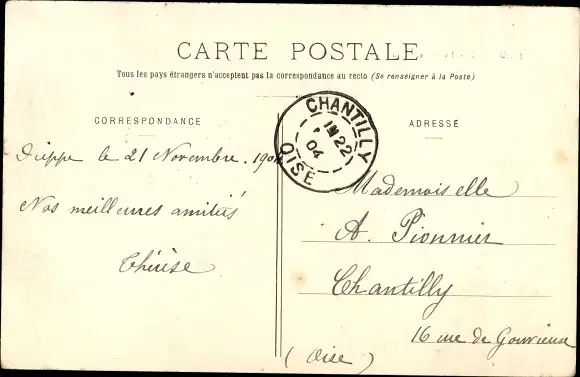 CARTE POSTALE
Tous les pays étrangers n'acceptent pas la correspondance au recto (Se renseigner à la Poste)
CORRESPONDANCE
Dieppe le 21 Novembre. 1904
Nos meilleures amitiés
Thérèse
CHANTILLY
22
04
OISE
ADRESSÉ
Mademoiselle
A. Pionnier
Chantilly
16 rue de Gouvieux
(Oise)